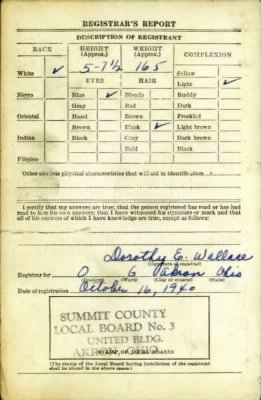 REGISTRAR'S REPORT
DESCRIPTION OF REGISTRANT
RACE HEIGHT (Approx.) WEIGHT (Approx.) COMPLEXION
White ✓ 5-7½ 165 Sallow
EYES HAIR Light ✓
Negro Blue ✓ Blonde Ruddy
Gray Red Dark
Oriental Hazel Brown Freckled
Brown Black ✓ Light brown
Indian Black Gray Dark brown
Bald Black
Filipino
Other obvious physical characteristics that will aid in identification
I certify that my answers are true; that the person registered has read or has had
read to him his own answers; that I have witnessed his signature or mark and that
all of his answers of which I have knowledge are true, except as follows:
Dorothy E. Wallace
(Signature of registrar)
Registrar for 6 Akron Ohio
(Precinct) (Ward) (City or county) (State)
Date of registration October 16, 1940
SUMMIT COUNTY
LOCAL BOARD No. 3
UNITED BLDG.
AKRON, OHIO
(STAMP OF LOCAL BOARD)
(The stamp of the Local Board having jurisdiction of the registrant
shall be placed in the above space)